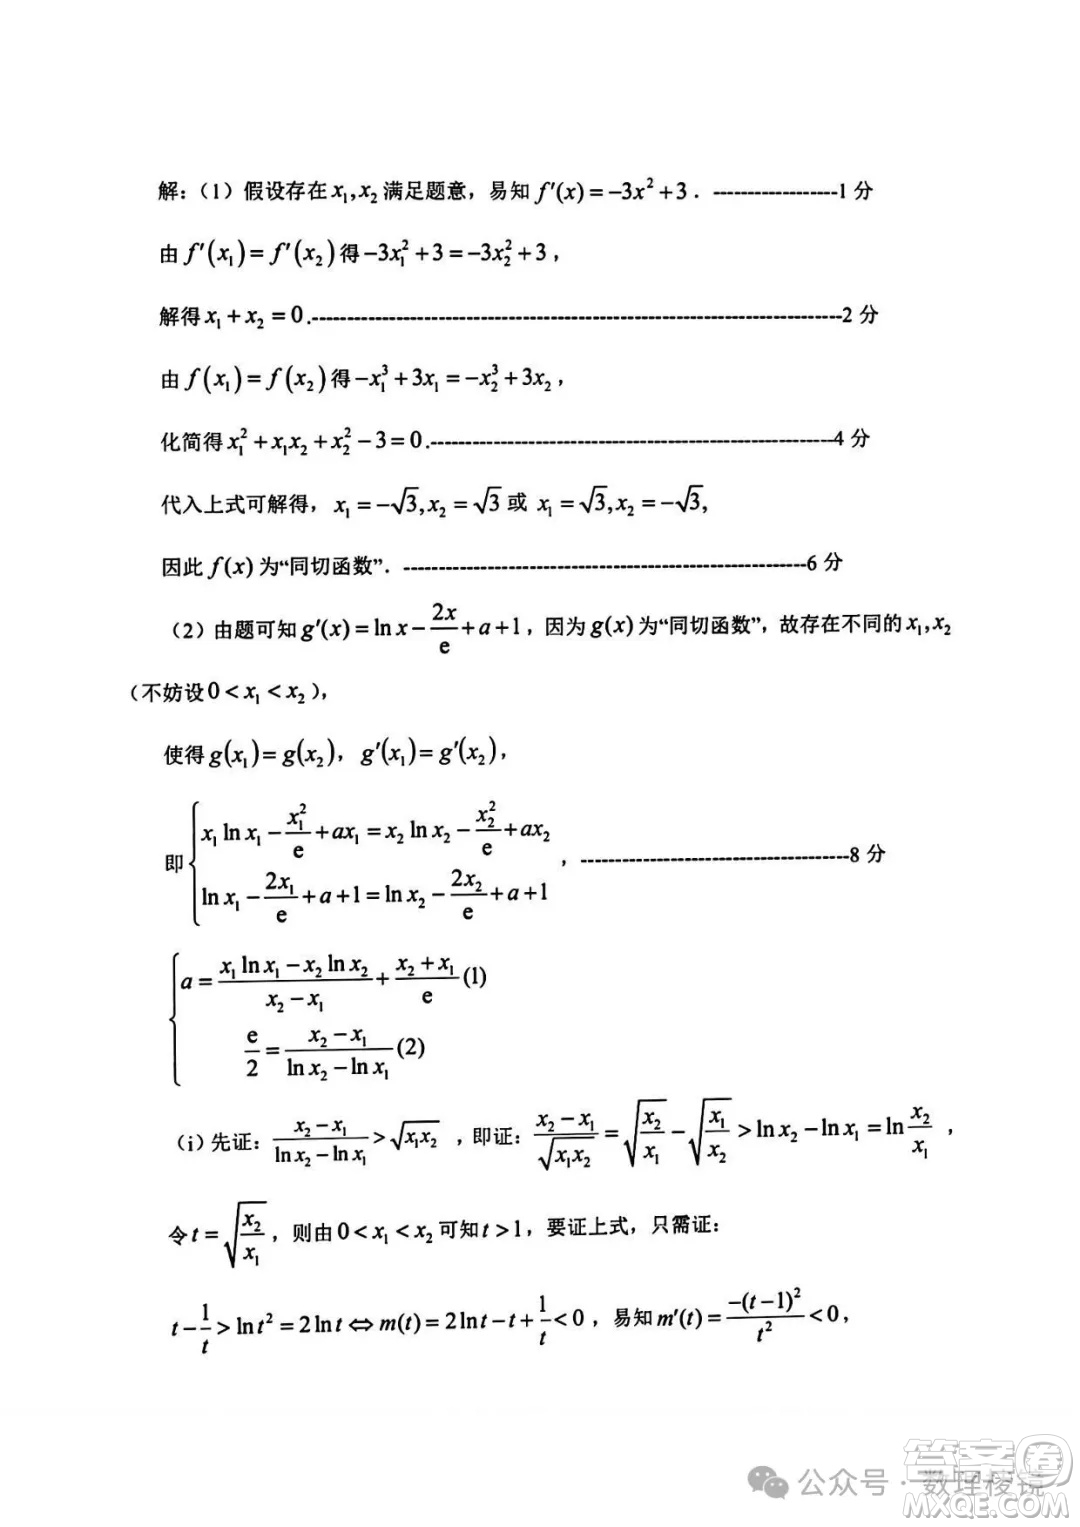 解：（1）假设存在 x₁,x₂ 满足题意，易知 f′(x)=−3x²+3．------------------1 分
由 f′(x₁)=f′(x₂) 得 −3x₁²+3=−3x₂²+3，
解得 x₁+x₂=0.------------------------------------------------------------------------2 分
由 f(x₁)=f(x₂) 得 −x₁³+3x₁=−x₂³+3x₂，
化简得 x₁²+x₁x₂+x₂²−3=0.----------------------------------------------------------4 分
代入上式可解得，x₁=−√3,x₂=√3 或 x₁=√3,x₂=−√3,
因此 f(x) 为“同切函数”．----------------------------------------------------------6 分
（2）由题可知 g′(x)=ln x−2x/e+a+1，因为 g(x) 为“同切函数”，故存在不同的 x₁,x₂
（不妨设 0<x₁<x₂），
使得 g(x₁)=g(x₂)，g′(x₁)=g′(x₂)，
即{x₁ln x₁−x₁²/e+ax₁=x₂ln x₂−x₂²/e+ax₂
ln x₁−2x₁/e+a+1=ln x₂−2x₂/e+a+1 ，--------------------------------------8 分
{a=(x₁ln x₁−x₂ln x₂)/(x₂−x₁)+(x₂+x₁)/e(1)
e/2=(x₂−x₁)/(ln x₂−ln x₁)(2)
（i）先证：(x₂−x₁)/(ln x₂−ln x₁)>√(x₁x₂) ，即证：(x₂−x₁)/√(x₁x₂)=√(x₂/x₁)−√(x₁/x₂)>ln x₂−ln x₁=ln(x₂/x₁)，
令 t=√(x₂/x₁)，则由 0<x₁<x₂ 可知 t>1，要证上式，只需证：
t−1/t>ln t²=2ln t⇔m(t)=2ln t−t+1/t<0，易知 m′(t)=−(t−1)²/t²<0，
答案圈
公众号·数理棱镜
MXQE.COM